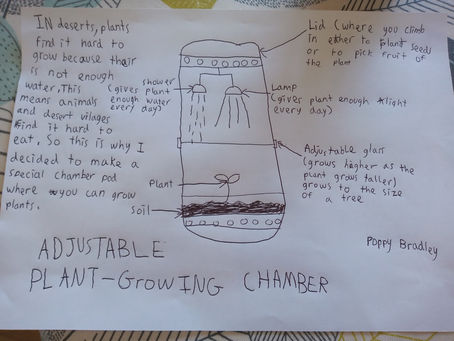 IN deserts, plants
find it hard to
grow because their
is not enough
water, This
means animals
and desert vilages
find it hard to
eat. So this is why I
decided to make a
special chamber pod
where you can grow
plants.
shower
(gives plant
enough water
every day)
Plant
Soil
Lid (where you climb
in either to plant seeds
or to pick fruit of
the plant
Lamp
(gives plant enough light
every day)
Adjustable glass
(grows higher as the
plant grows taller)
grows to the size
of a tree
Poppy Bradley
ADJUSTABLE
PLANT-GrowING CHAMBER